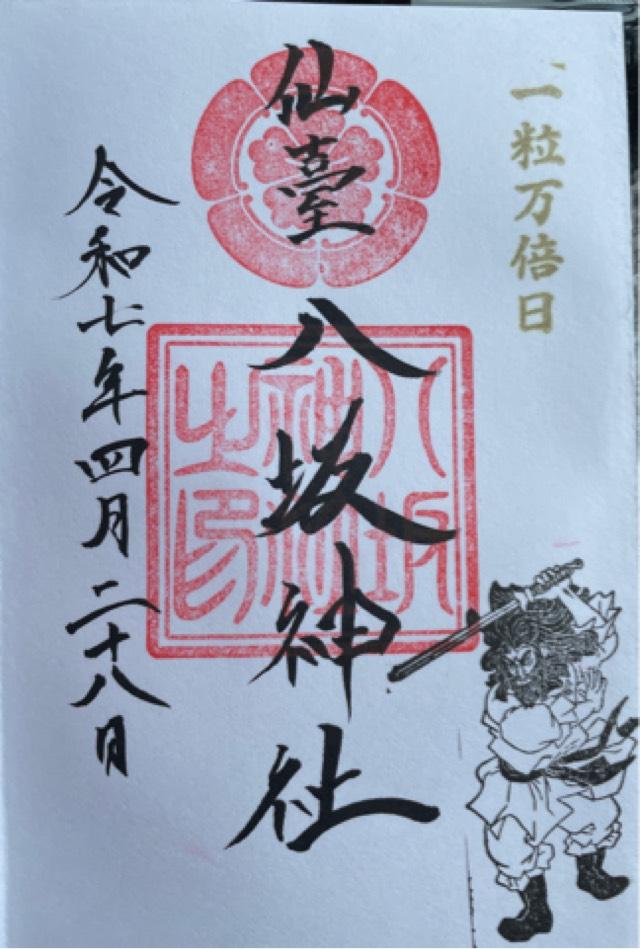 一粒万倍日
仙臺
八坂神社
八坂神社之印
令和七年四月二十八日